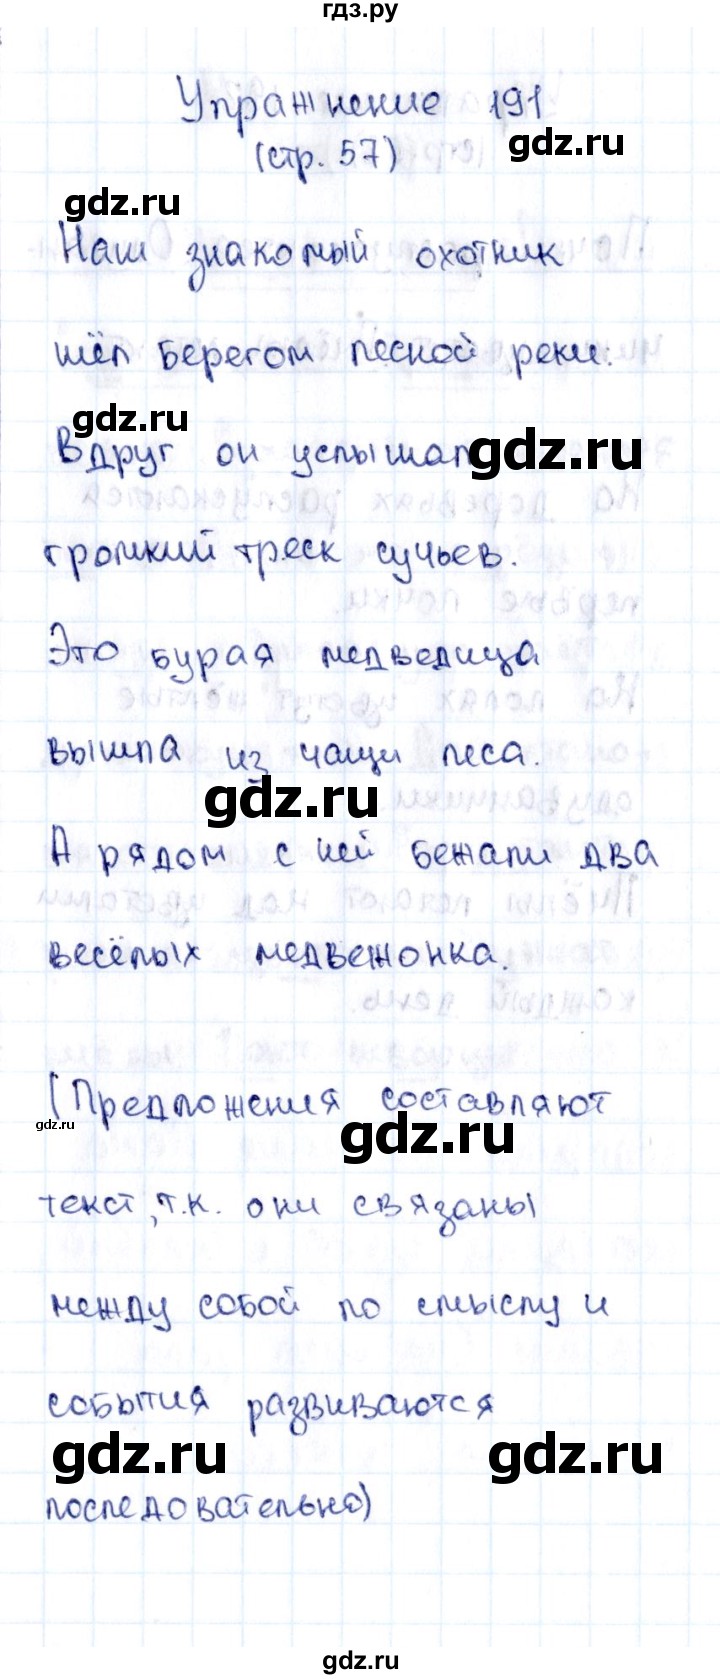 гдз.ру
Упражнение 191
(стр. 57)
gdz.ru
gdz.ru
Наш знакомый охотник
шёл берегом лесной реки.
gdz.ru
Вдруг он услышал
gdz.ru
громкий треск сучьев.
Это бурая медведица
вышла из чащи леса.
gdz.ru
А рядом с ней бежали два
весёлых медвежонка.
(Предложения составляют
gdz.ru
gdz.ru
текст, т.к. они связаны
между собой по смыслу и
события развиваются
gdz.ru
gdz.ru
последовательно)
gdz.ru